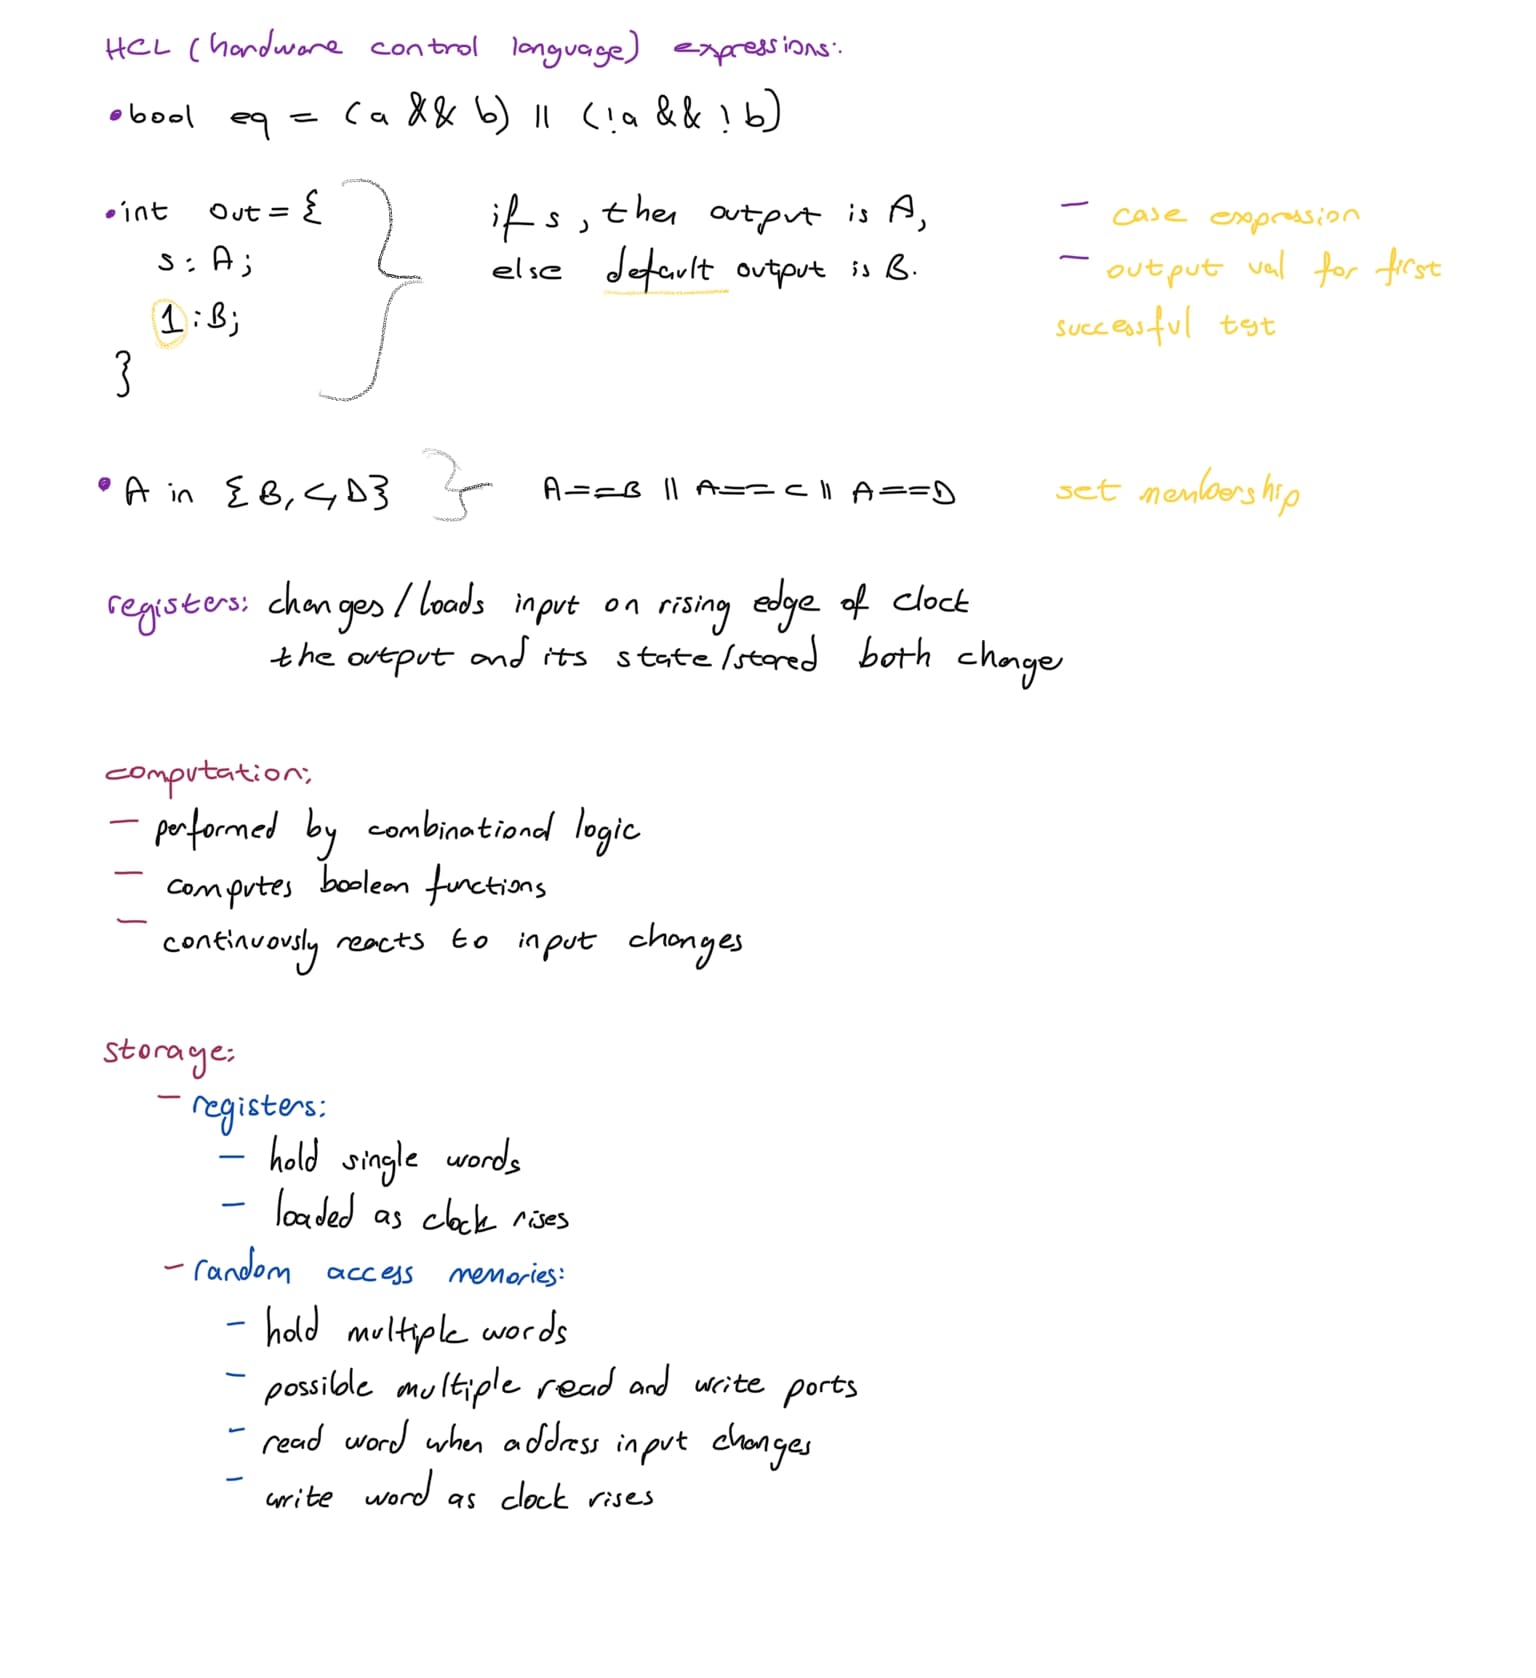 HCL (hardware control language) expressions:
• bool eq = (a && b) || (!a && !b)
• int out = {
s : A;
1 : B;
}
if s, then output is A,
else default output is B.
- case expression
- output val for first
successful test
• A in {B, C, D}
A==B || A==C || A==D
set membership
registers: changes/loads input on rising edge of clock
the output and its state/stored both change
computation:
- performed by combinational logic
- computes boolean functions
- continuously reacts to input changes
storage:
- registers:
- hold single words
- loaded as clock rises
- random access memories:
- hold multiple words
- possible multiple read and write ports
- read word when address input changes
- write word as clock rises